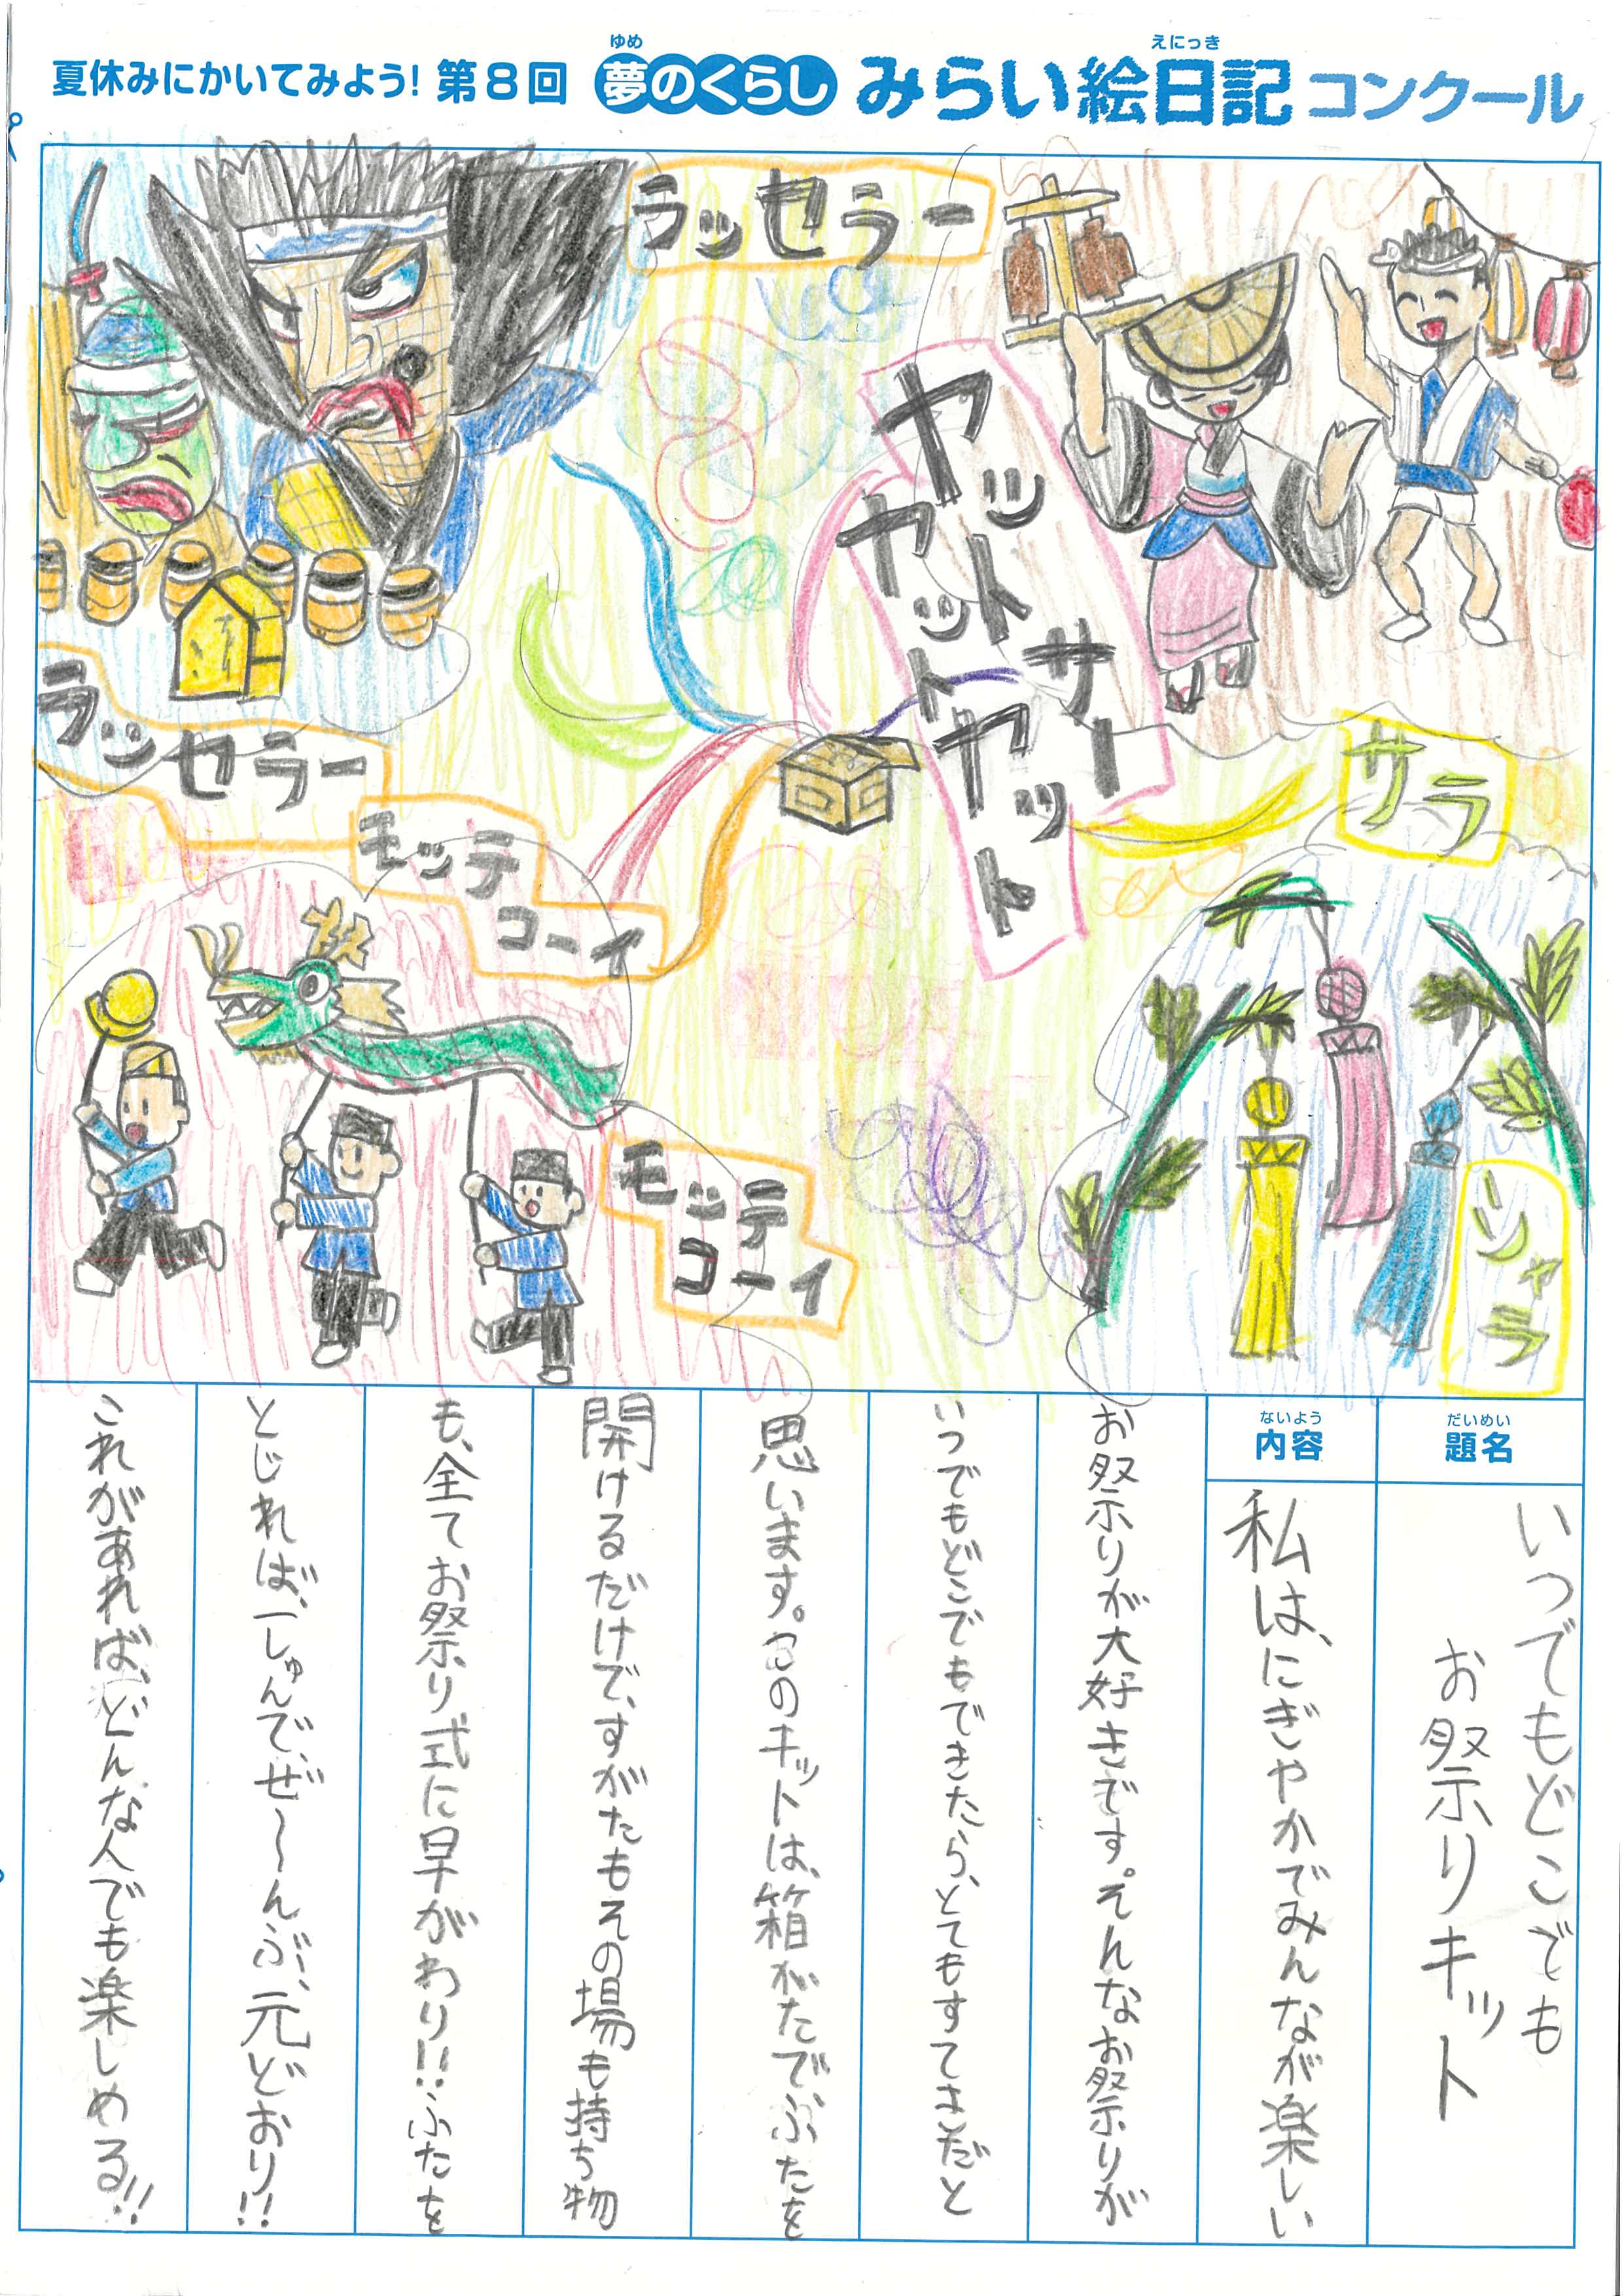 夏休みにかいてみよう! 第8回 夢のくらし みらい絵日記 コンクール
ゆめ
えにっき
ラッセラー
ヤットサー
ヤットヤット
ラッセラー
モッテコーイ
モッテコーイ
サラ
サラ
ーソャラ
だいめい
題名
いつでもどこでも
お祭りキット
ないよう
内容
私は、にぎやかでみんなが楽しい
お祭りが大好きです。そんなお祭りが
いつでもどこでもできたら、とてもすてきだと
思います。このキットは、箱がたでふたを
開けるだけで、すがたもその場も持ち物
も、全てお祭り式に早がわり!!ふたを
とじれば、一しゅんで、ぜ〜んぶ、元どおり!!
これがあれば、どんな人でも楽しめる!!